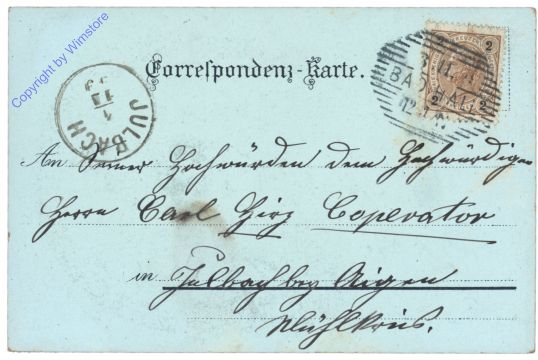 Copyright by Wimstore
Correspondenz-Karte.
2
BAD HALL
2 2
JULBACH
4
11
99
An Seiner Hochwürden dem Hochwürdigen
Herrn Carl Hirz Coperator
in Julbach bez Aigen
Mühlkreis.